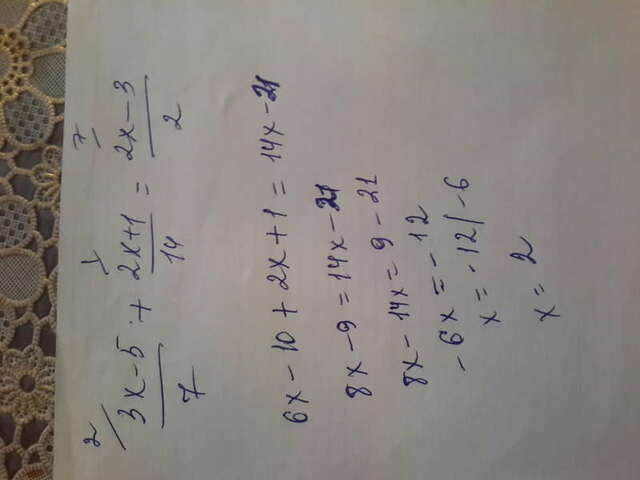 2/ (3x-5)/7 + 1/ (2x+1)/14 = 7/ (2x-3)/2
6x-10+2x+1=14x-21
8x-9=14x-21
8x-14x=9-21
-6x=-12
x=-12/-6
x=2